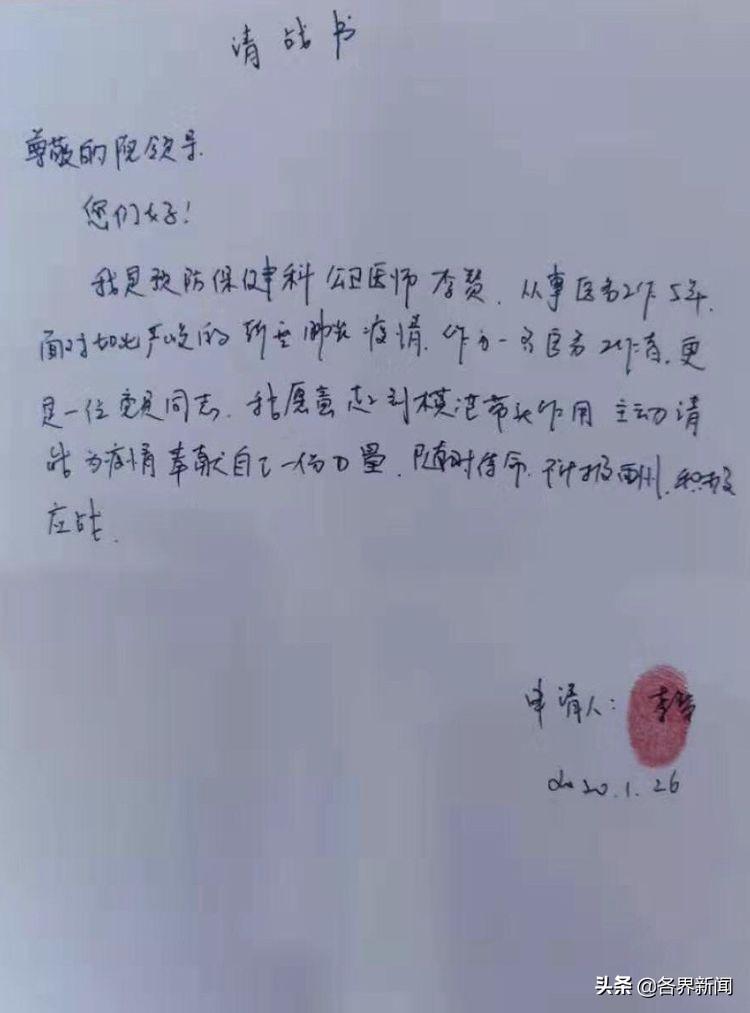 请战书
尊敬的院领导.
您们好!
我是预防保健科公卫医师李赞. 从事医务工作5年.
面对如此严峻的新型肺炎疫情. 作为一名医务工作者. 更
是一位党员同志. 我愿意起到模范带头作用 主动请
战为疫情奉献自己一份力量. 随时待命. 不计报酬. 积极
应战.
申请人: 李赞
2020.1.26
头条 @各界新闻